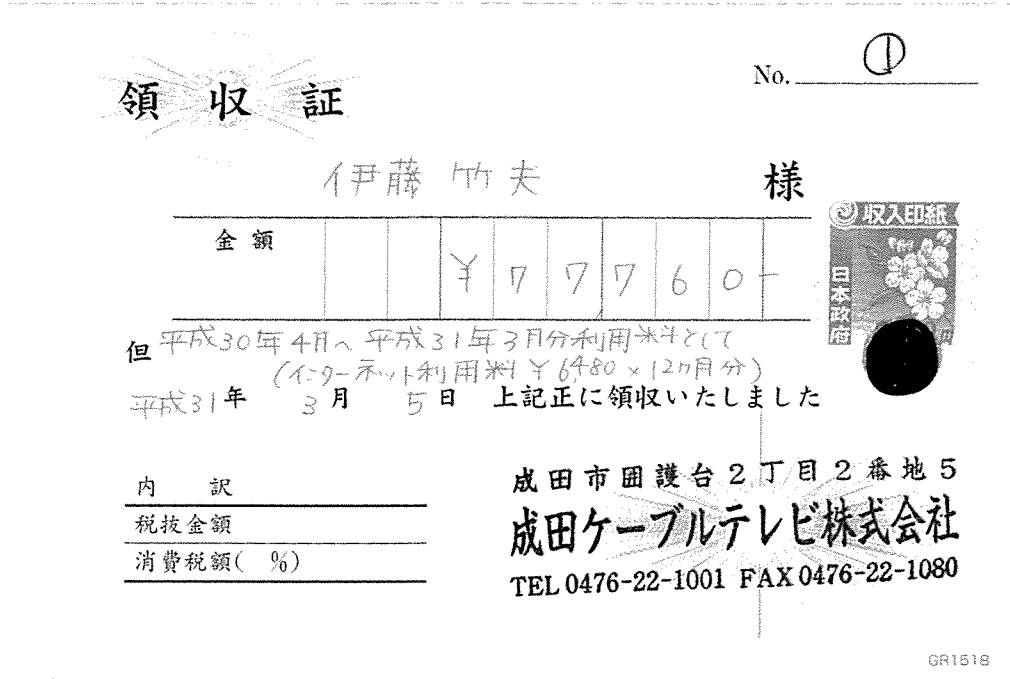 No. ①
領 収 証
伊藤 竹夫 様
収入印紙
日本政府
円
金額 ¥77760-
但 平成30年4月～平成31年3月分利用料として
(インターネット利用料 ¥6,480×12ヶ月分)
平成31年 3月 5日 上記正に領収いたしました
内 訳
税抜金額
消費税額( %)
成田市囲護台2丁目2番地5
成田ケーブルテレビ株式会社
TEL 0476-22-1001 FAX 0476-22-1080
GR1518